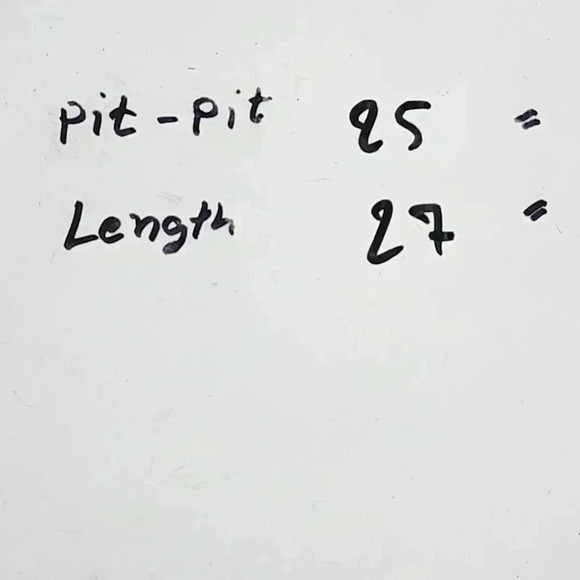 Pit-Pit 25 "
Length 27 "